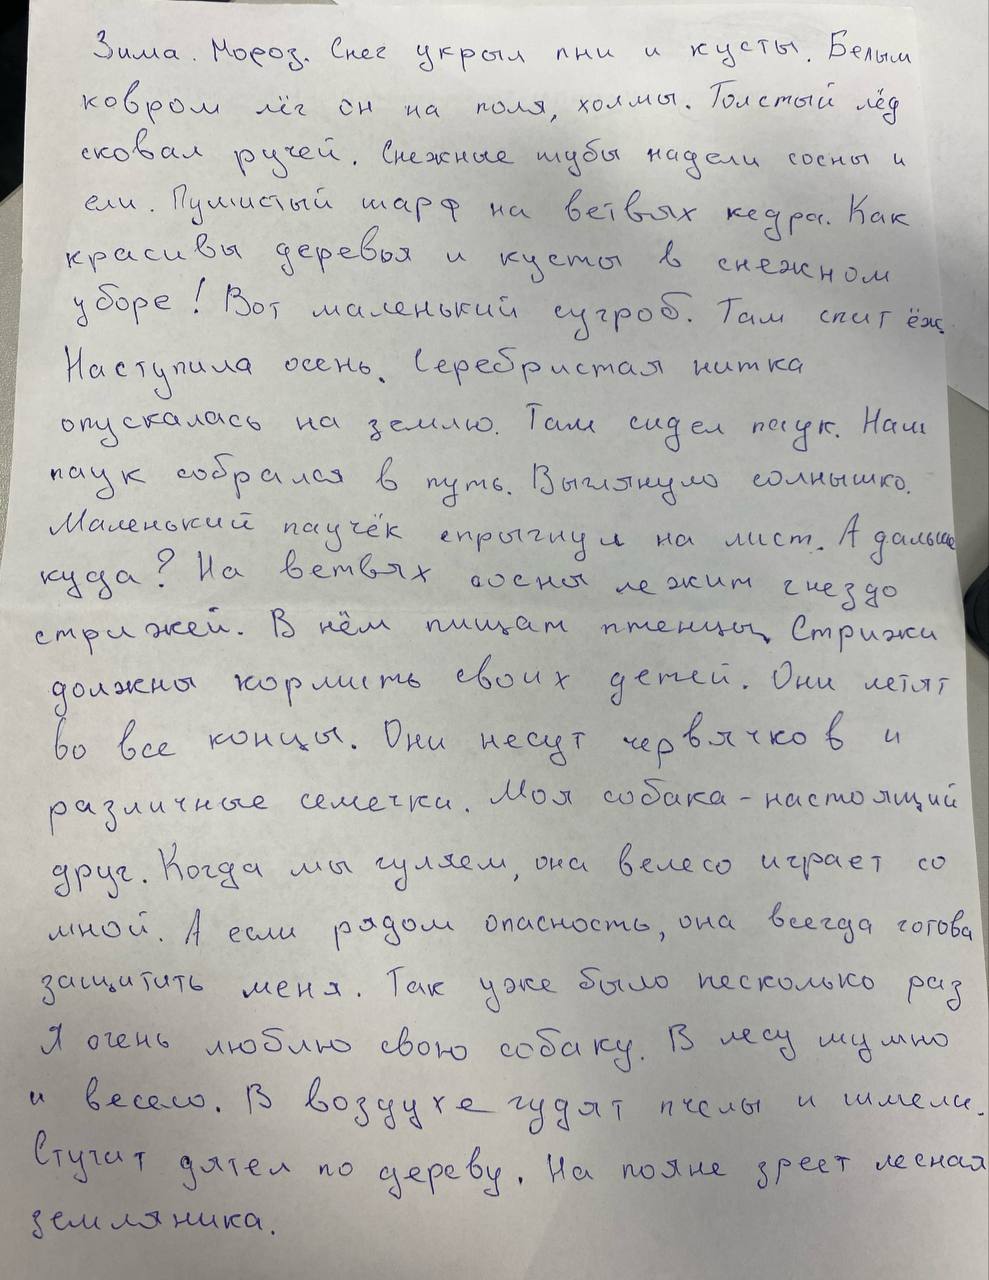 Зима. Мороз. Снег укрыл пни и кусты. Белым
ковром лёг он на поля, холмы. Толстый лёд
сковал ручей. Снежные шубы надели сосны и
ели. Пушистый шарф на ветвях кедра. Как
красивы деревья и кусты в снежном
уборе! Вот маленький сугроб. Там спит ёж.
Наступила осень. Серебристая нитка
опускалась на землю. Там сидел паук. Наш
паук собрался в путь. Выглянуло солнышко.
Маленький паучёк спрыгнул на лист. А дальше
куда? На ветвях сосны лежит гнездо
стрижей. В нём пищат птенцы. Стрижи
должны кормить своих детей. Они летят
во все концы. Они несут червячков и
различные семечки. Моя собака - настоящий
друг. Когда мы гуляем, она велесо играет со
мной. А если рядом опасность, она всегда готова
защитить меня. Так уже было несколько раз
Я очень люблю свою собаку. В лесу шумно
и весело. В воздухе гудят пчелы и шмели.
Стучит дятел по дереву. На пояне зреет лесная
земляника.